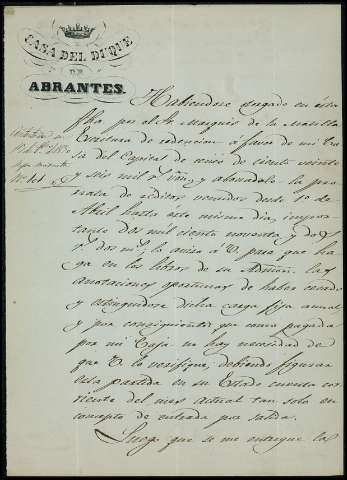 CASA DEL DUQUE
DE
ABRANTES.
Habiendose pagado en esta
fha por el Sr. Marques de la
Escritura de redencion á favor de mi Ca
sa del Capital de censo de ciento veinte
y seis mil r. vn, y abonado la pro
rata de réditos vencidos desde 1.o de
Abril hasta este mismo dia, impor
tante dos mil ciento noventa y dos
r. dos m.s, lo aviso á V. para que ha
ga en los libros de su Admon. las
anotaciones oportunas de haber cesado
y extinguidose dicha carga fija anual
y por consiguiente que como pagada
por mi Caja no hay necesidad de
que V. lo verifique, debiendo figurar
esta partida en su Estado cuenta cor
riente del mes actual tan solo en
concepto de entrada por salida.
Luego que se me entregue las